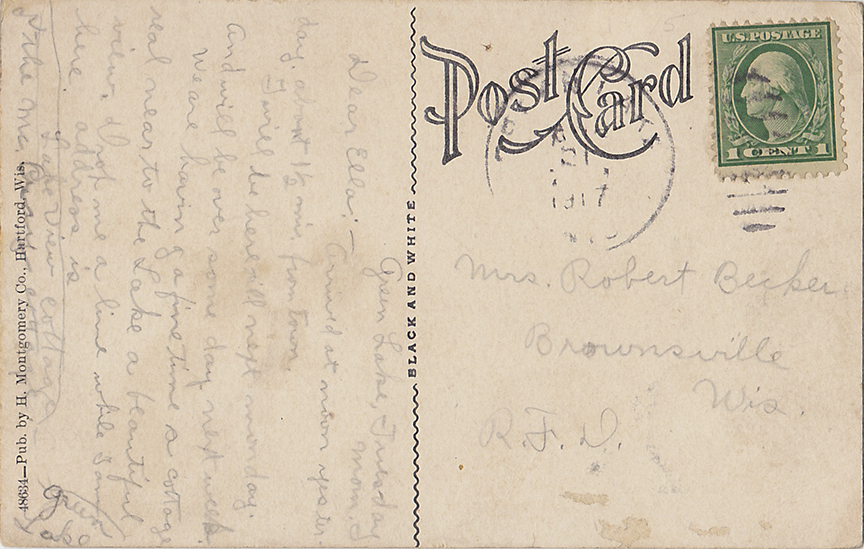 Post Card
U.S. POSTAGE
1 CENT 1
1917
Mrs. Robert Becker
Brownsville
Wis.
R.F.D.
BLACK AND WHITE
48634—Pub. by H. Montgomery Co., Hartford, Wis.
Green Lake, Tuesday
Morn.
Dear Ella:— Arrived at noon yester-
day, about 1½ mi. from town.
I will be here till next monday.
And will be over some day next week.
We are having a fine time a cottage
real near to the Lake a beautiful
view, drop me a line while I am
here address is
Lake View Cottage